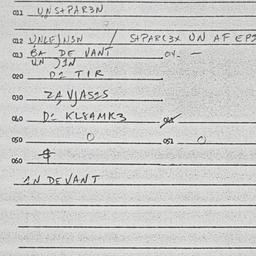 011 UNSTPAR3N
012 UNLE)NSN / STPARC3X UN AF EP2
013 BA DE VANT OV. —
UN )1N
020 D2 TIR
030 ZA VJAS2S
040 D2 KL8AMK3 041
050 0 051 0
060
1N DEVANT